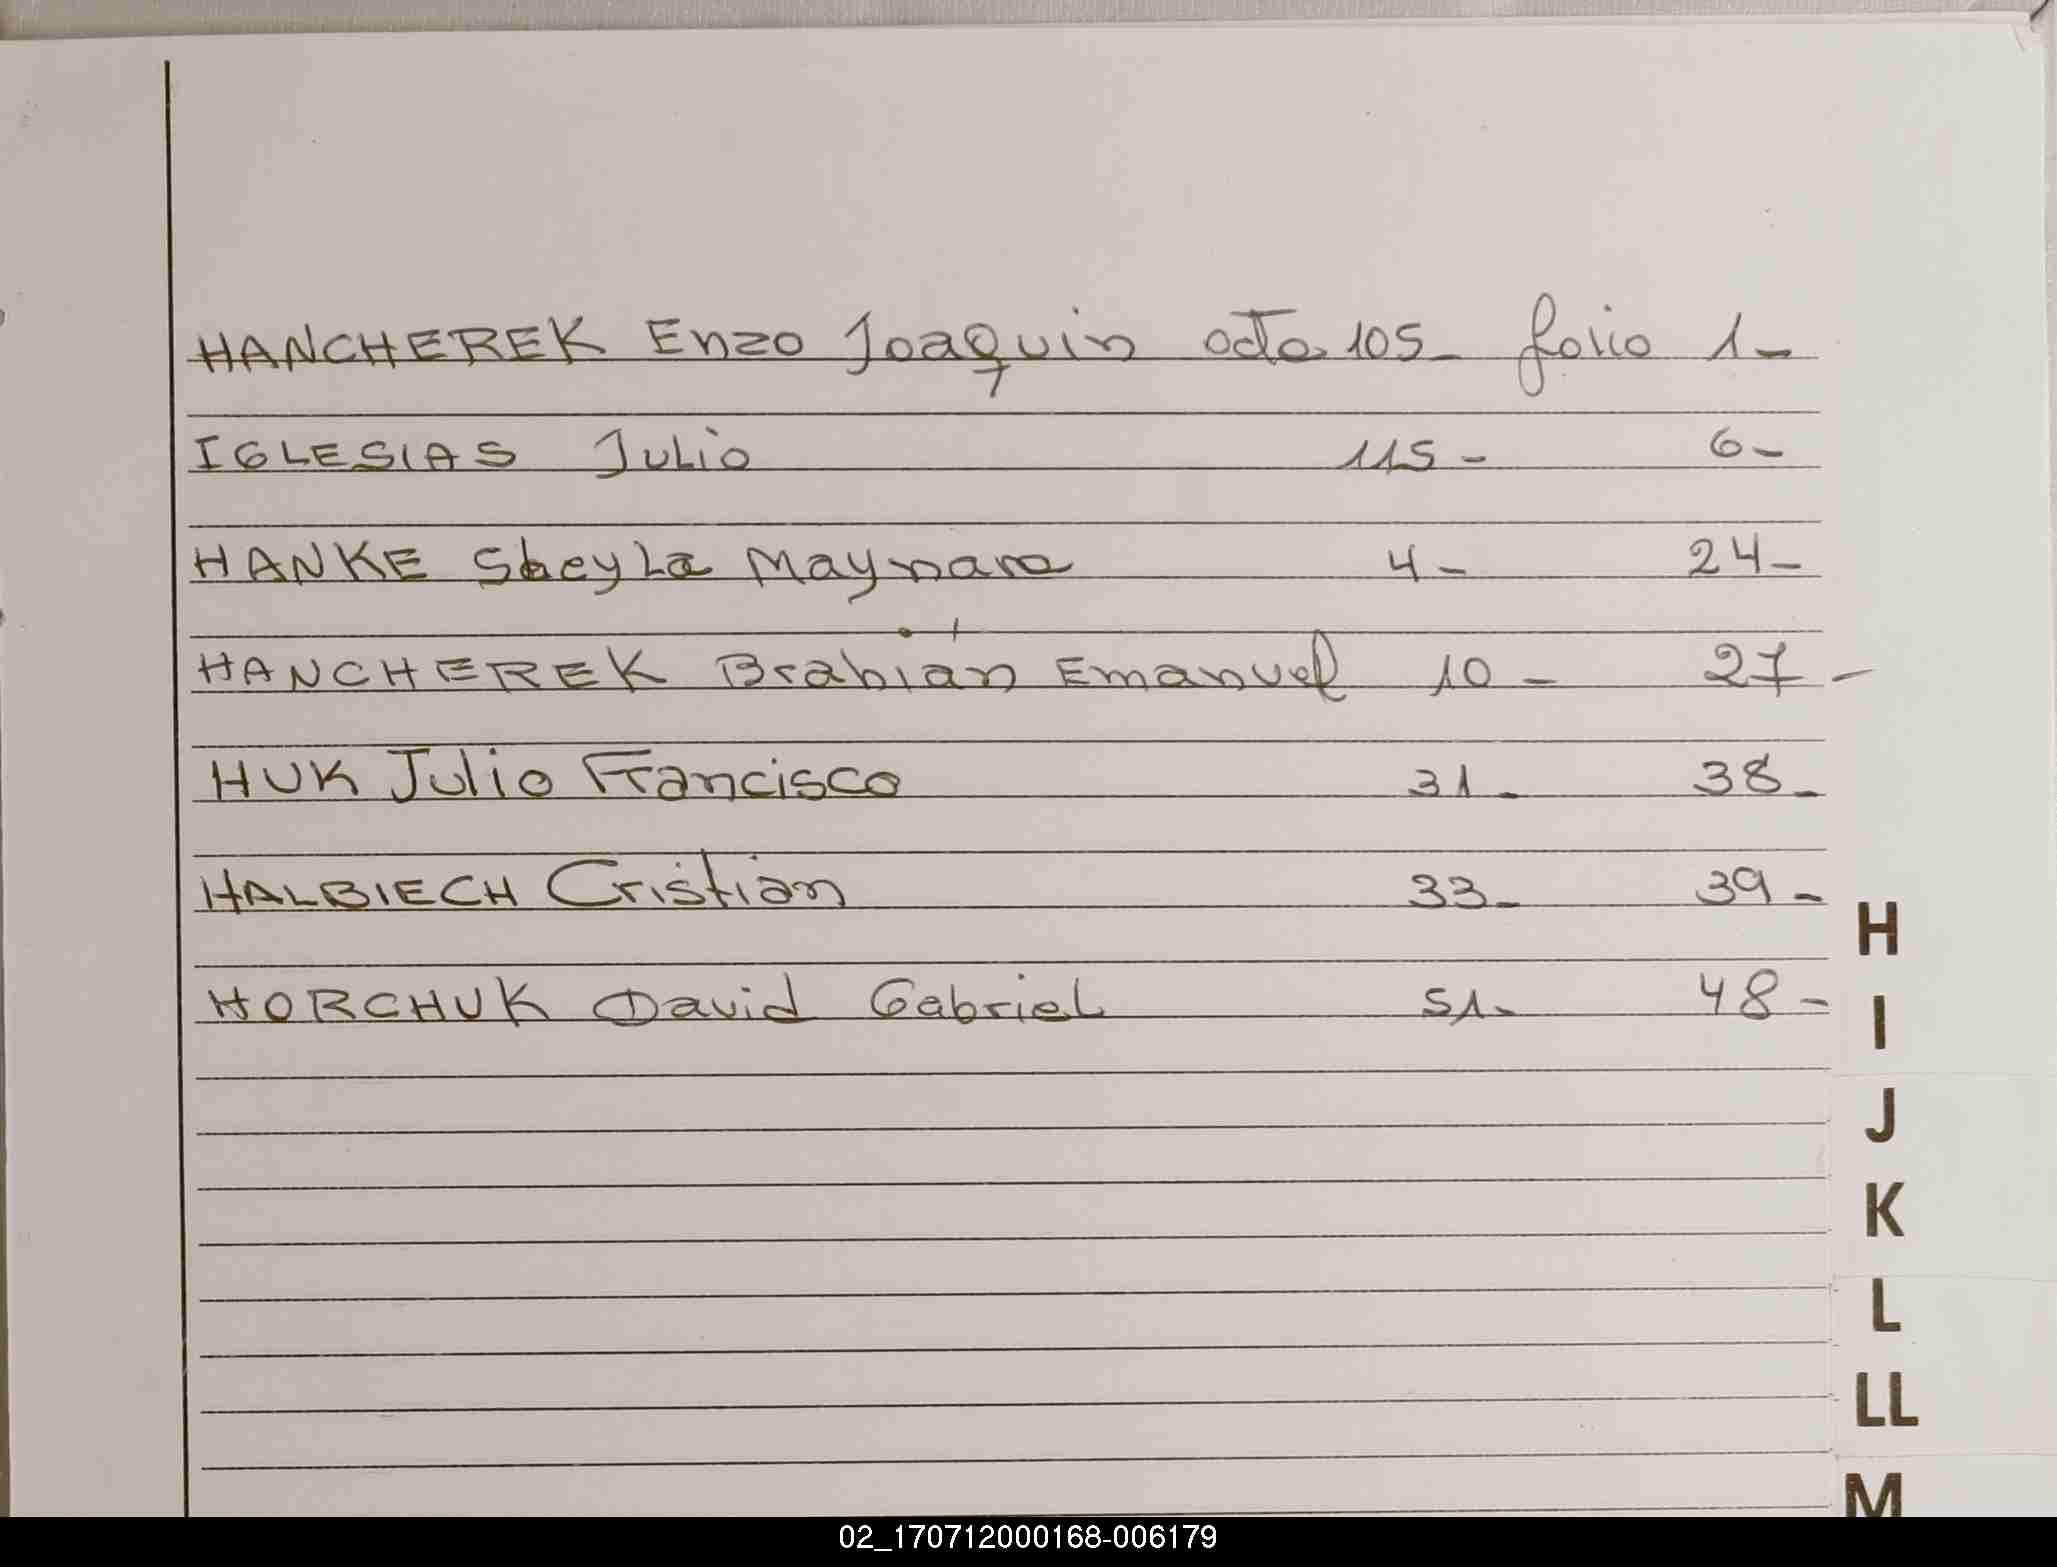 HANCHEREK Enzo Joaquin acta 105- folio 1-
IGLESIAS Julio 115- 6-
HANKE Sheyla Maynara 4- 24-
HANCHEREK Brahian Emanuel 10- 27-
HUK Julio Francisco 31- 38-
HALBIECH Cristian 33- 39-
HORCHUK David Gabriel 51- 48-
H
I
J
K
L
LL
M
02_170712000168-006179